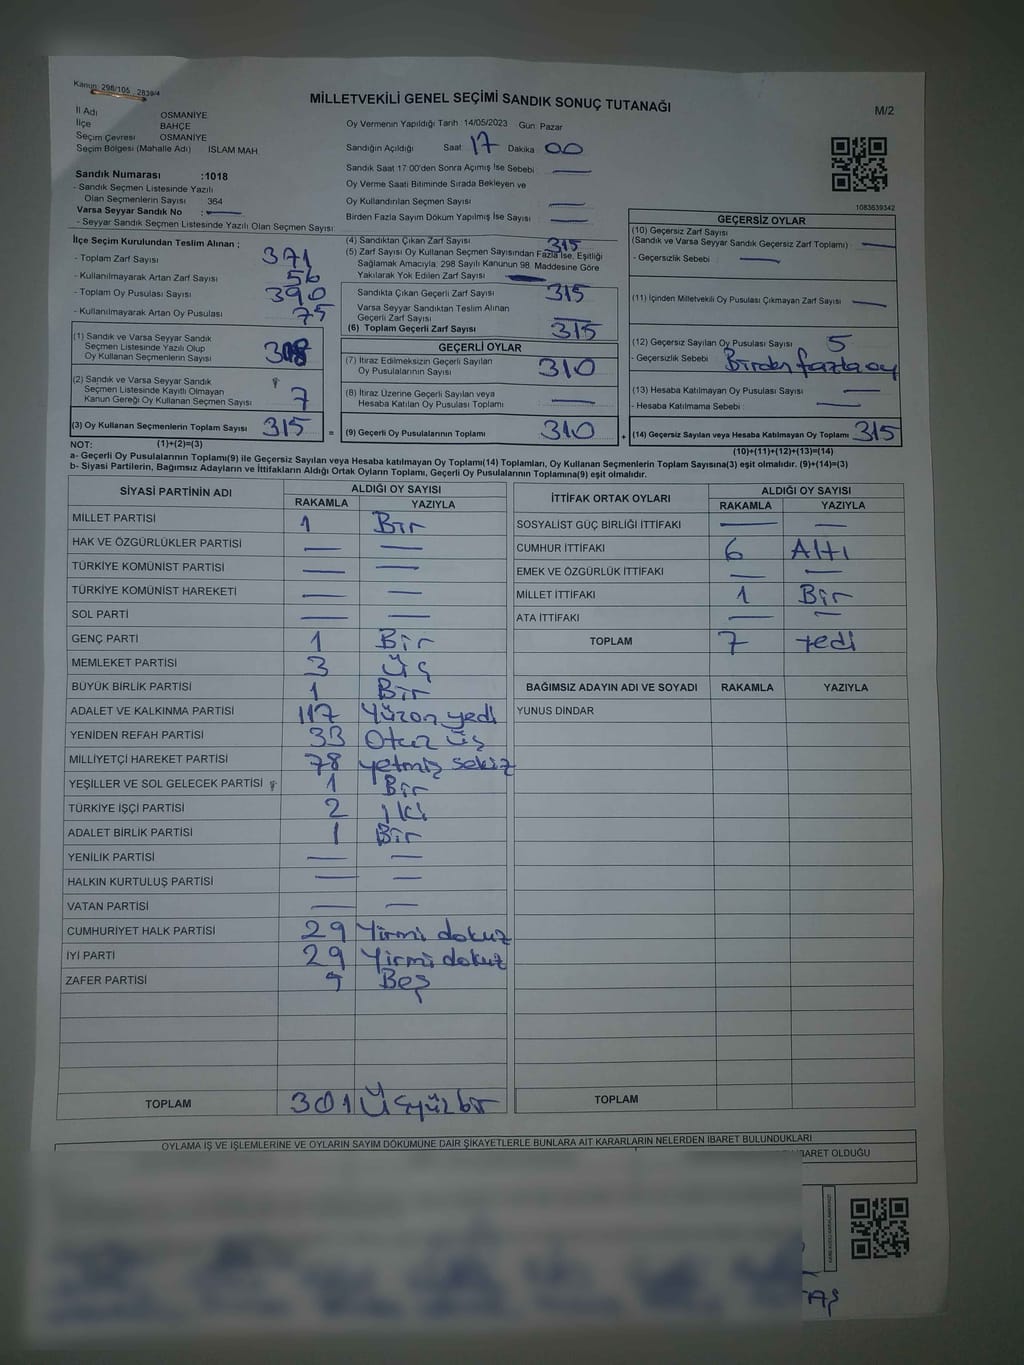 Kanun: 298/105 2839/4
MİLLETVEKİLİ GENEL SEÇİMİ SANDIK SONUÇ TUTANAĞI
M/2
İl Adı OSMANİYE
İlçe BAHÇE
Seçim Çevresi OSMANİYE
Seçim Bölgesi (Mahalle Adı) İSLAM MAH.
Oy Vermenin Yapıldığı Tarih: 14/05/2023 Gün: Pazar
Sandığın Açıldığı Saat: 17 Dakika 00
Sandık Saat 17:00'den Sonra Açımış İse Sebebi
Oy Verme Saati Bitiminde Sırada Bekleyen ve
Oy Kullandırılan Seçmen Sayısı
Birden Fazla Sayım Döküm Yapılmış İse Sayısı
1083639342
Sandık Numarası :1018
- Sandık Seçmen Listesinde Yazılı
Olan Seçmenlerin Sayısı 364
Varsa Seyyar Sandık No :
- Seyyar Sandık Seçmen Listesinde Yazılı Olan Seçmen Sayısı:
İlçe Seçim Kurulundan Teslim Alınan ;
- Toplam Zarf Sayısı 371
- Kullanılmayarak Artan Zarf Sayısı 56
- Toplam Oy Pusulası Sayısı 390
- Kullanılmayarak Artan Oy Pusulası 75
(1) Sandık ve Varsa Seyyar Sandık
Seçmen Listesinde Yazılı Olup
Oy Kullanan Seçmenlerin Sayısı 308
(2) Sandık ve Varsa Seyyar Sandık
Seçmen Listesinde Kayıtlı Olmayan
Kanun Gereği Oy Kullanan Seçmen Sayısı 7
(3) Oy Kullanan Seçmenlerin Toplam Sayısı 315 =
(4) Sandıktan Çıkan Zarf Sayısı 315
(5) Zarf Sayısı Oy Kullanan Seçmen Sayısından Fazla İse, Eşitliği
Sağlamak Amacıyla; 298 Sayılı Kanunun 98. Maddesine Göre
Yakılarak Yok Edilen Zarf Sayısı
Sandıkta Çıkan Geçerli Zarf Sayısı 315
Varsa Seyyar Sandıktan Teslim Alınan
Geçerli Zarf Sayısı
(6) Toplam Geçerli Zarf Sayısı 315
GEÇERLİ OYLAR
(7) İtiraz Edilmeksizin Geçerli Sayılan
Oy Pusulalarının Sayısı 310
(8) İtiraz Üzerine Geçerli Sayılan veya
Hesaba Katılan Oy Pusulası Toplamı
(9) Geçerli Oy Pusulalarının Toplamı 310 +
GEÇERSİZ OYLAR
(10) Geçersiz Zarf Sayısı
(Sandık ve Varsa Seyyar Sandık Geçersiz Zarf Toplamı)
- Geçersizlik Sebebi
(11) İçinden Milletvekili Oy Pusulası Çıkmayan Zarf Sayısı
(12) Geçersiz Sayılan Oy Pusulası Sayısı 5
- Geçersizlik Sebebi Birden fazla oy
(13) Hesaba Katılmayan Oy Pusulası Sayısı
- Hesaba Katılmama Sebebi
(14) Geçersiz Sayılan veya Hesaba Katılmayan Oy Toplamı 315
NOT: (1)+(2)=(3)
(10)+(11)+(12)+(13)=(14)
a- Geçerli Oy Pusulaları Toplamı(9) ile Geçersiz Sayılan veya Hesaba katılmayan Oy Toplamı(14) Toplamları, Oy Kullanan Seçmenlerin Toplam Sayısına(3) eşit olmalıdır. (9)+(14)=(3)
b- Siyasi Partilerin, Bağımsız Adayların ve İttifakların Aldığı Ortak Oyların Toplamı, Geçerli Oy Pusulalarının Toplamına(9) eşit olmalıdır.
SİYASİ PARTİNİN ADI ALDIĞI OY SAYISI
RAKAMLA YAZIYLA
MİLLET PARTİSİ 1 Bir
HAK VE ÖZGÜRLÜKLER PARTİSİ
TÜRKİYE KOMÜNİST PARTİSİ
TÜRKİYE KOMÜNİST HAREKETİ
SOL PARTİ
GENÇ PARTİ 1 Bir
MEMLEKET PARTİSİ 3 Üç
BÜYÜK BİRLİK PARTİSİ 1 Bir
ADALET VE KALKINMA PARTİSİ 117 Yüzon yedi
YENİDEN REFAH PARTİSİ 33 Otuz üş
MİLLİYETÇİ HAREKET PARTİSİ 78 yetmiş sekiz
YEŞİLLER VE SOL GELECEK PARTİSİ 1 Bir
TÜRKİYE İŞÇİ PARTİSİ 2 İki
ADALET BİRLİK PARTİSİ 1 Bir
YENİLİK PARTİSİ
HALKIN KURTULUŞ PARTİSİ
VATAN PARTİSİ
CUMHURİYET HALK PARTİSİ 29 Yirmi dokuz
İYİ PARTİ 29 Yirmi dokuz
ZAFER PARTİSİ 5 Beş
TOPLAM 301 Üçyüzbir
İTTİFAK ORTAK OYLARI ALDIĞI OY SAYISI
RAKAMLA YAZIYLA
SOSYALİST GÜÇ BİRLİĞİ İTTİFAKI
CUMHUR İTTİFAKI 6 Altı
EMEK VE ÖZGÜRLÜK İTTİFAKI
MİLLET İTTİFAKI 1 Bir
ATA İTTİFAKI
TOPLAM 7 yedi
BAĞIMSIZ ADAYIN ADI VE SOYADI RAKAMLA YAZIYLA
YUNUS DİNDAR
TOPLAM
OYLAMA İŞ VE İŞLEMLERİNE VE OYLARIN SAYIM DÖKÜMÜNE DAİR ŞİKAYETLERLE BUNLARA AİT KARARLARIN NELERDEN İBARET BULUNDUKLARI
İBARET OLDUĞU